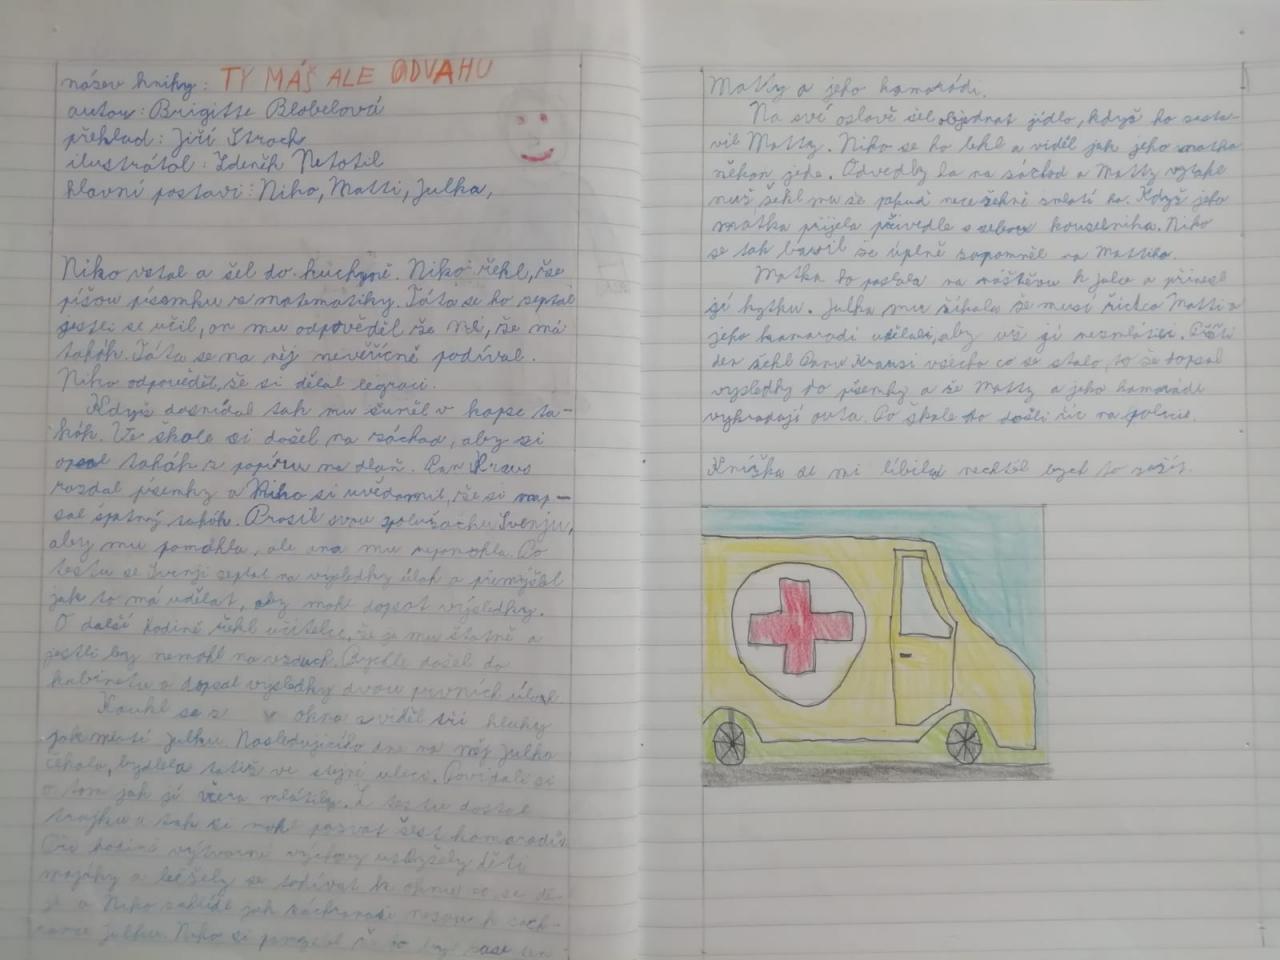 název knihy: TY MÁŠ ALE ODVAHU
autor: Brigitte Blobelová
překlad: Jiří Strach
ilustrátol: Zdeněk Netotil
hlavní postavi: Niko, Matti, Julka,
Niko vstal a šel do kuchyně. Niko řekl, že
píšou písemku z matematiky. Táta se ho zeptal
jestli se učil, on mu odpověděl že ne, že má
tahák. Táta se na něj nevěřícně podíval.
Niko odpověděl, že si dělal legraci.
Když dosnídal tak mu šuměl v kapse ta-
hák. Ve škole si došel na záchod, aby si
opsal tahák z papíru na dlaň. Pan Kraus
rozdal písemky a Niko si uvědomil, že si nap-
sal špatný tahák. Prosil svou spolužačku Svenju,
aby mu pomohla, ale ona mu nepomohla. Po
testu se Svenji zeptal na výsledky úloh a přemýšlel
jak to má udělat, aby mohl dopsat výsledky.
O další hodině řekl učitelce, že je mu špatně a
jestli by nemohl na vzduch. Rychle došel do
kabinetu a dopsal výsledky dvou prvních úloh.
Koukl se z okna a viděl tři kluky
jak mlátí Julku. Následujícího dne na něj Julka
čekala, bydlela totiž ve stejné ulici. Povídali si
o tom jak jí včera mlátily. Z testu dostal
trojku a tak si mohl pozvat šest kamarádů.
Při hodině výtvarné výchovy uslyšely děti
majáky a běžely se podívat k oknu co se dě-
je a Niko zahlídl jak záchranáři nesou k sanit-
Julku. Niko si
Matty a jeho kamarádi.
Na své oslavě šel objednat jídlo, když ho zasta-
vil Matty. Niko se ho lekl a viděl jak jeho matka
někam jede. Odvedly ho na záchod a Matty
řekl mu že pokud neco řekne zmlátí ho. Když jeho
matka přijela přivedle s sebou kouzelníka. Niko
se tak bavil že úplně zapomněl na Mattiho.
Matka ho poslala na návštěvu k Julce a přinesl
jí kytku. Julka mu říkala že musí říct co Matti a
jeho kamarádi udělali, aby už jí nezmlátili. Příští
den řekl Panu Krausi všecko co se stalo, to že dopsal
výsledky do písemky a že Matty a jeho kamarádi
vykrádají auta. Po škole to došli říc na policii.
Knížka se mi líbila nechtěl bych to zažít.